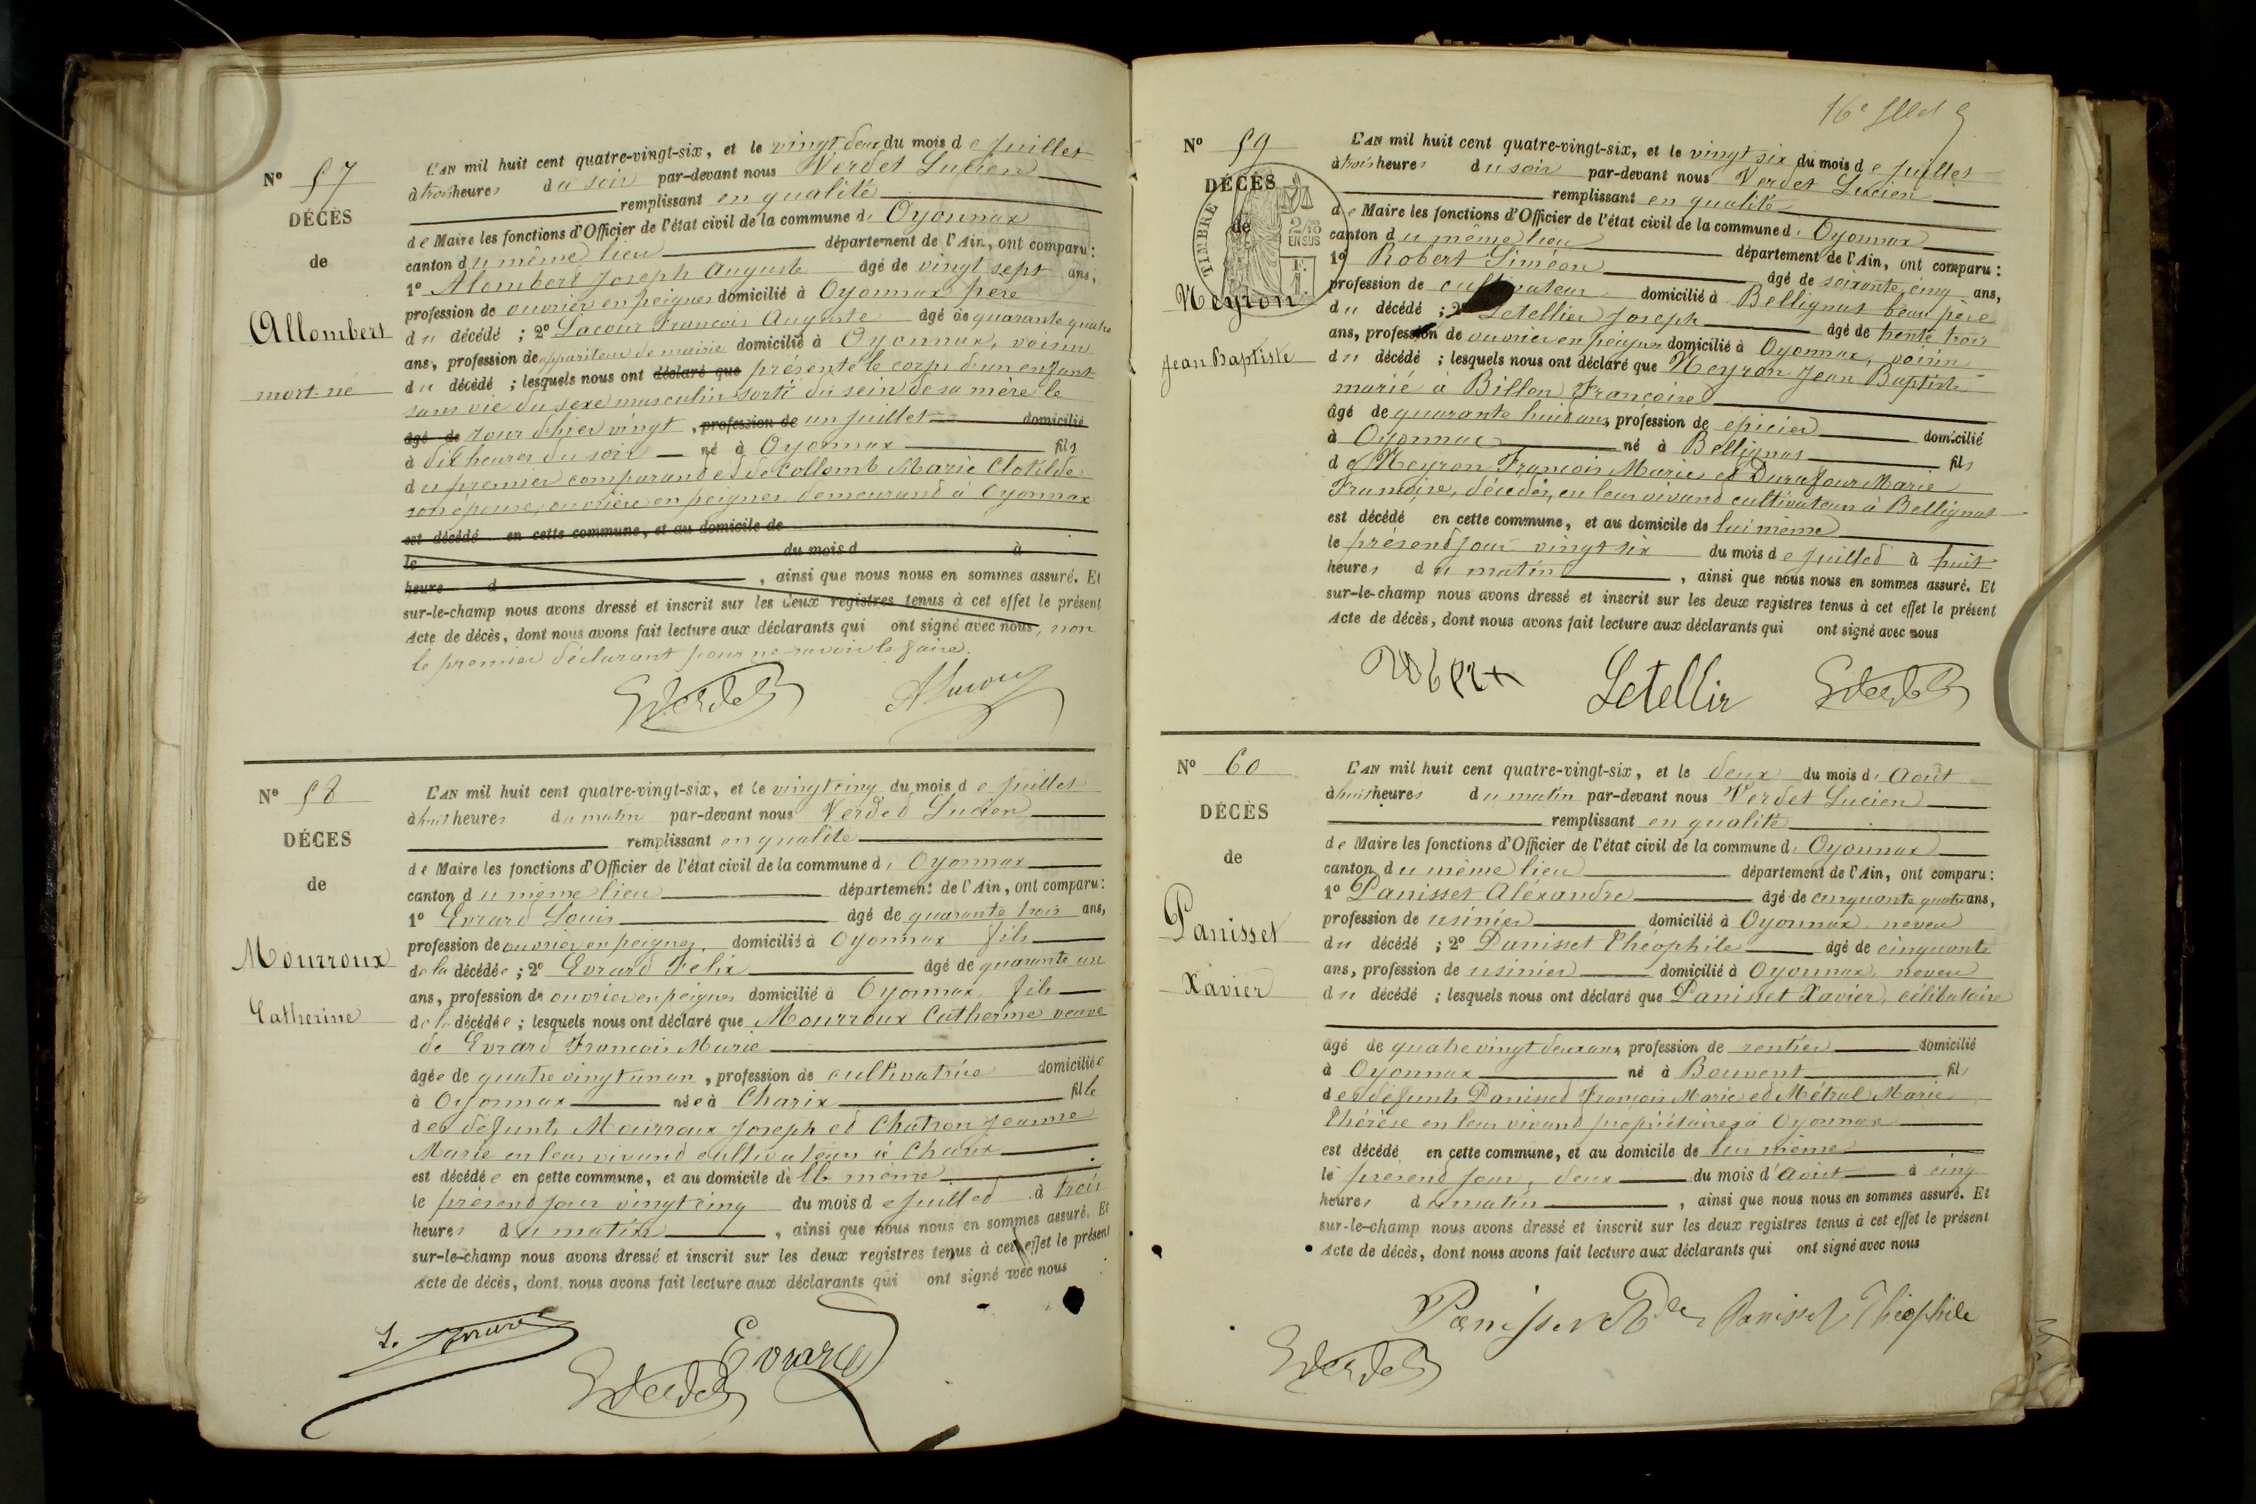 Nº 57
DÉCÈS
de
Allombert
mort-né
L'AN mil huit cent quatre-vingt-six, et le vingt deux du mois de Juillet
à trois heures du soir par-devant nous Verdet Lucien
remplissant en qualité
de Maire les fonctions d'Officier de l'état civil de la commune d' Oyonnax
canton du même lieu département de l'Ain, ont comparu :
1º Alombert Joseph Auguste âgé de vingt sept ans,
profession de ouvrier en peignes domicilié à Oyonnax père
du décédé ; 2º Lacour François Auguste âgé de quarante quatre
ans, profession de appariteur de mairie domicilié à Oyonnax, voisin
du décédé ; lesquels nous ont déclaré que présenté le corps d'un enfant
sans vie du sexe masculin sorti du sein de sa mère le
âgé de jour d'hier vingt, profession de un juillet domicilié
à dix heures du soir né à Oyonnax fils
du premier comparant et de Collomb Marie Clotilde
son épouse, ouvrière en peignes demeurant à Oyonnax
est décédé en cette commune, et au domicile de
le du mois d à
heure d , ainsi que nous nous en sommes assuré. Et
sur-le-champ nous avons dressé et inscrit sur les deux registres tenus à cet effet le présent
Acte de décès, dont nous avons fait lecture aux déclarants qui ont signé avec nous, non
le premier déclarant pour ne savoir le faire.
Nº 58
DÉCES
de
Mourroux
Catherine
L'AN mil huit cent quatre-vingt-six, et le vingt cinq du mois de Juillet
à huit heures du matin par-devant nous Verdet Lucien
remplissant en qualité
de Maire les fonctions d'Officier de l'état civil de la commune d' Oyonnax
canton du même lieu département de l'Ain, ont comparu :
1º Evrard Louis âgé de quarante trois ans,
profession de ouvrier en peignes, domicilié à Oyonnax fils
de la décédée ; 2º Evrard Felix âgé de quarante un
ans, profession de ouvrier en peignes domicilié à Oyonnax, fils
de la décédée ; lesquels nous ont déclaré que Mourroux Catherine veuve
de Evrard François Marie
âgée de quatre vingt un an, profession de cultivatrice domiciliée
à Oyonnax née à Charix fille
des défunts Mourroux Joseph et Chatron Jeanne
Marie en leur vivant cultivateurs à Charix
est décédée en cette commune, et au domicile de elle même
le présent jour vingt cinq du mois de juillet à trois
heures du matin , ainsi que nous nous en sommes assuré. Et
sur-le-champ nous avons dressé et inscrit sur les deux registres tenus à cet effet le présent
Acte de décès, dont nous avons fait lecture aux déclarants qui ont signé avec nous
Evrard
Nº 59
DÉCÈS
de
TIMBRE
2/10
EN SUS
Neyron
Jean Baptiste
L'AN mil huit cent quatre-vingt-six, et le vingt six du mois de Juillet
à trois heures du soir par-devant nous Verdet Lucien
remplissant en qualité
de Maire les fonctions d'Officier de l'état civil de la commune d' Oyonnax
canton du même lieu département de l'Ain, ont comparu :
1º Robert Siméon âgé de soixante cinq ans,
profession de cultivateur domicilié à Bellignat beau père
du décédé ; 2º Letellier Joseph âgé de trente trois
ans, profession de ouvrier en peignes domicilié à Oyonnax, voisin
du décédé ; lesquels nous ont déclaré que Neyron Jean Baptiste
marié à Billon Françoise
âgé de quarante huit ans, profession de épicier domicilié
à Oyonnax né à Bellignat fils
de Neyron François Marie et Durafour Marie
Françoise, décédés, en leur vivant cultivateurs à Bellignat
est décédé en cette commune, et au domicile de lui même
le présent jour vingt six du mois de juillet à huit
heures du matin , ainsi que nous nous en sommes assuré. Et
sur-le-champ nous avons dressé et inscrit sur les deux registres tenus à cet effet le présent
Acte de décès, dont nous avons fait lecture aux déclarants qui ont signé avec nous
Robert Letellir
Nº 60
DÉCÈS
de
Panisset
Xavier
L'AN mil huit cent quatre-vingt-six, et le deux du mois d' Août
à huit heures du matin par-devant nous Verdet Lucien
remplissant en qualité
de Maire les fonctions d'Officier de l'état civil de la commune d' Oyonnax
canton du même lieu département de l'Ain, ont comparu :
1º Panisset Aléxandre âgé de cinquante quatre ans,
profession de usinier domicilié à Oyonnax neveu
du décédé ; 2º Panisset Théophile âgé de cinquante
ans, profession de usinier domicilié à Oyonnax, neveu
du décédé ; lesquels nous ont déclaré que Panisset Xavier, célibataire
âgé de quatre vingt deux ans, profession de rentier domicilié
à Oyonnax né à Bouvent fils
des défunts Panisset François Marie et Métral Marie
Thérèse en leur vivant propriétaires à Oyonnax
est décédé en cette commune, et au domicile de lui même
le présent jour, deux du mois d'août à cinq
heures du matin , ainsi que nous nous en sommes assuré. Et
sur-le-champ nous avons dressé et inscrit sur les deux registres tenus à cet effet le présent
Acte de décès, dont nous avons fait lecture aux déclarants qui ont signé avec nous
Panisset Panisset Théophile